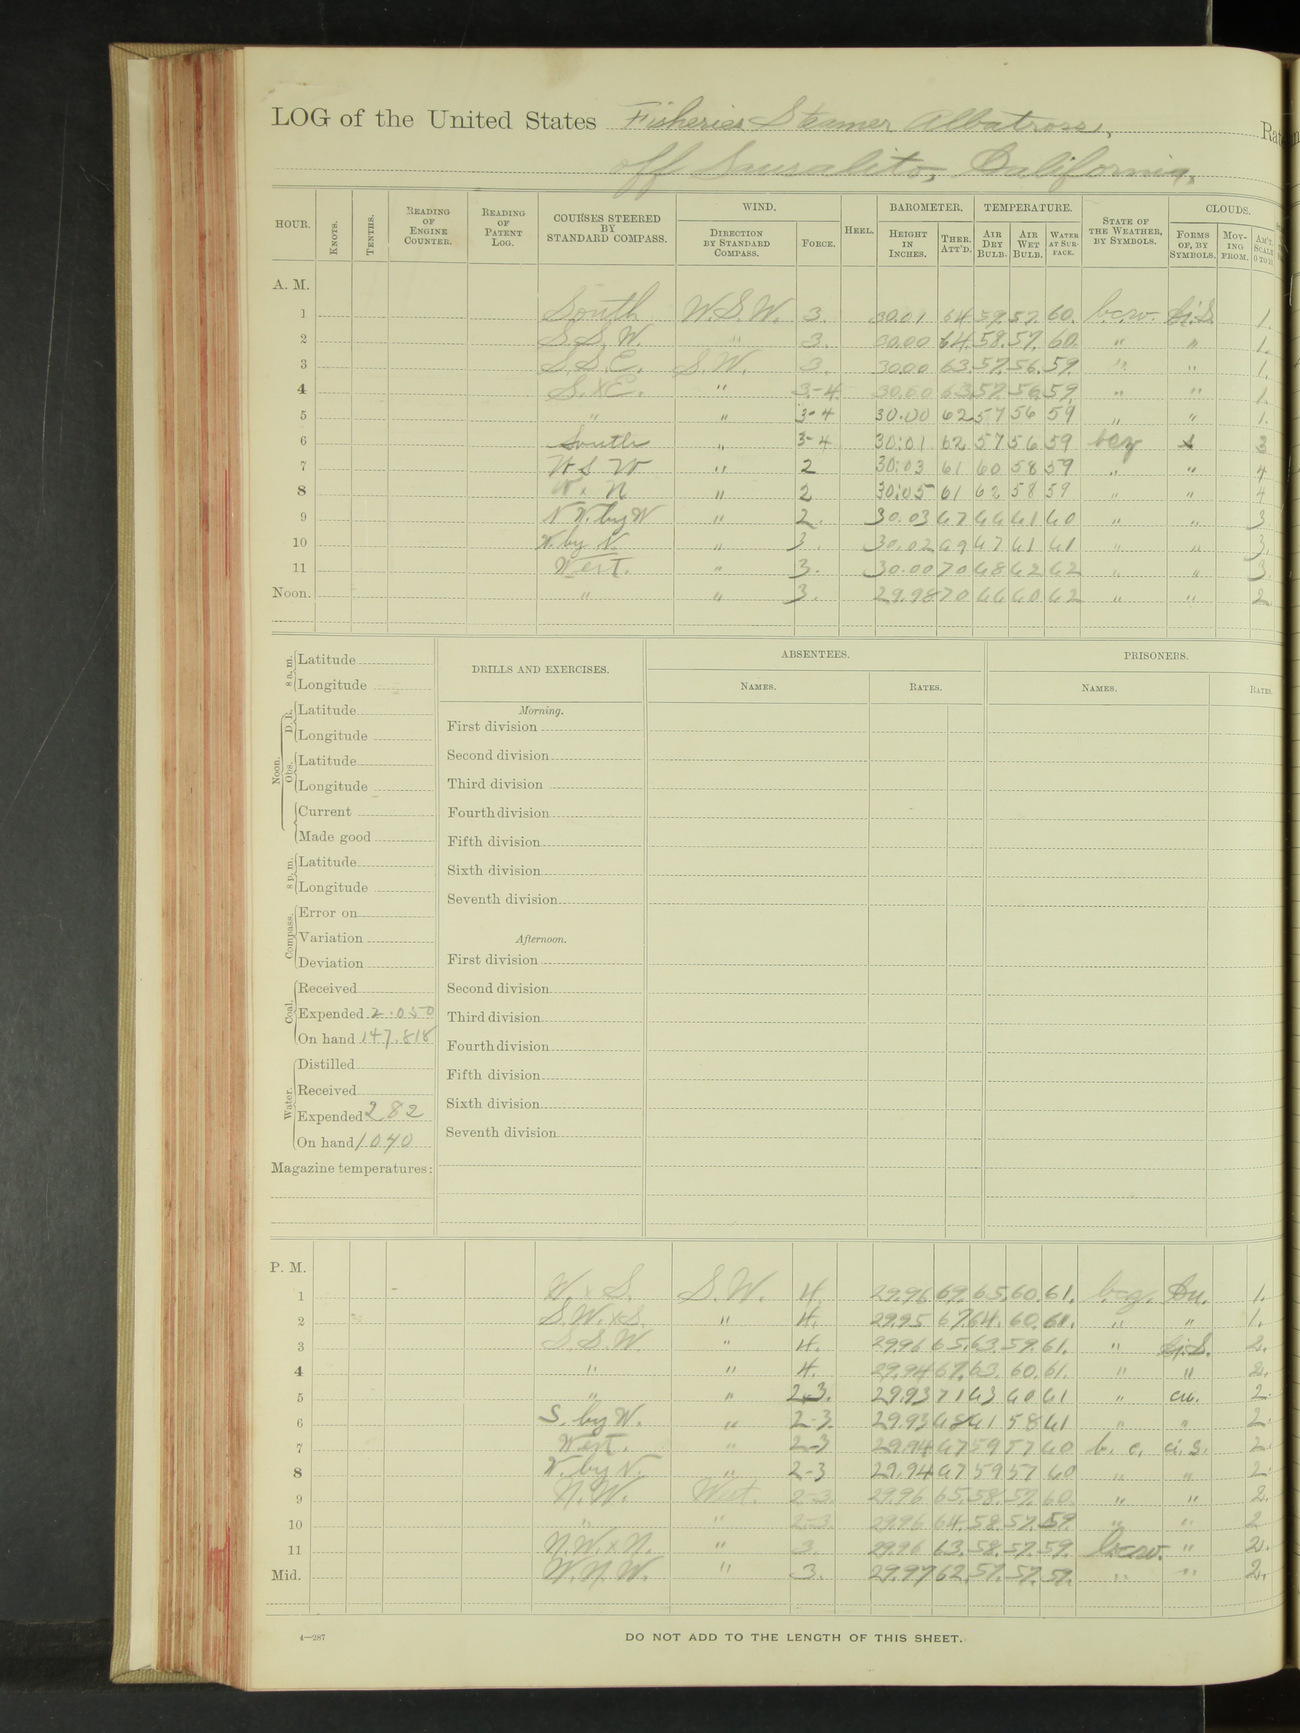 LOG of the United States Fisheries Steamer Albatross,
off Sausalito, California,
HOUR. KNOTS. TENTHS. READING OF ENGINE COUNTER. READING OF PATENT LOG. COURSES STEERED BY STANDARD COMPASS. WIND. DIRECTION BY STANDARD COMPASS. FORCE. HEEL. BAROMETER. HEIGHT IN INCHES. THER. ATT'D. TEMPERATURE. AIR DRY BULB. AIR WET BULB. WATER AT SURFACE. STATE OF THE WEATHER, BY SYMBOLS. CLOUDS. FORMS OF, BY SYMBOLS. MOVING FROM. AM'T. SCALE 0 TO 10.
A. M.
1 South W.S.W. 3. 30.01 64 59. 57. 60. b.c.w. Ci.S. 1.
2 S.S.W. " 3. 30.00 64. 58. 57. 60. " " 1.
3 S.S.E. S.W. 3. 30.00 63. 57. 56. 59. " " 1.
4 S.xE. " 3-4 30.00 63. 57. 56. 59. " " 1.
5 " " 3-4 30.00 62 57 56 59 " " 1.
6 South " 3-4 30:01 62 57 56 59 bcg 3
7 W S W " 2 30:03 61 60 58 59 " " 4
8 W x N " 2 30:05 61 62 58 59 " " 4
9 N W. by W " 2. 30.03 67 66 61 60 " " 3
10 W. by N. " 3. 30.02 69 67 61 61 " " 3.
11 West. " 3. 30.00 70 68 62 62 " " 3.
Noon. " " 3. 29.98 70 66 60 62 " " 2
8 a. m. Latitude
Longitude
Noon. D. R. Latitude
Longitude
Obs. Latitude
Longitude
Current
Made good
8 p. m. Latitude
Longitude
Compass. Error on
Variation
Deviation
Coal. Received
Expended 2.050
On hand 147.818
Water. Distilled
Received
Expended 282
On hand 1040
Magazine temperatures:
DRILLS AND EXERCISES.
Morning.
First division
Second division
Third division
Fourth division
Fifth division
Sixth division
Seventh division
Afternoon.
First division
Second division
Third division
Fourth division
Fifth division
Sixth division
Seventh division
ABSENTEES.
NAMES. RATES.
PRISONERS.
NAMES. RATES.
P. M.
1 W. x S. S.W. 4. 29.96 69. 65. 60. 61. b.c.g. Cu. 1.
2 S.W.xS. " 4. 29.95 67 64. 60. 61. " " 1.
3 S.S.W. " 4. 29.96 65. 63. 59. 61. " Ci.S. 2.
4 " " 4. 29.94 67. 63. 60. 61. " " 2.
5 " " 2-3. 29.93 71 63 60 61 " cu. 2.
6 S. by W. " 2-3. 29.93 68 61 58 61 " " 2.
7 West. " 2-3 29.94 67 59 57 60 b. c. ci. s. 2.
8 W. by N. " 2-3 29.94 67 59 57 60 " " 2.
9 N.W. West. 2-3. 29.96 65. 58. 57. 60. " " 2.
10 " " 2-3. 29.96 64. 58. 57. 59. " " 2
11 N.W.xN. " 3. 29.96 63. 58. 57. 59. b.c.w. " 2.
Mid. W.N.W. " 3. 29.97 62. 57. 57. 59. " " 2.
4—287
DO NOT ADD TO THE LENGTH OF THIS SHEET.